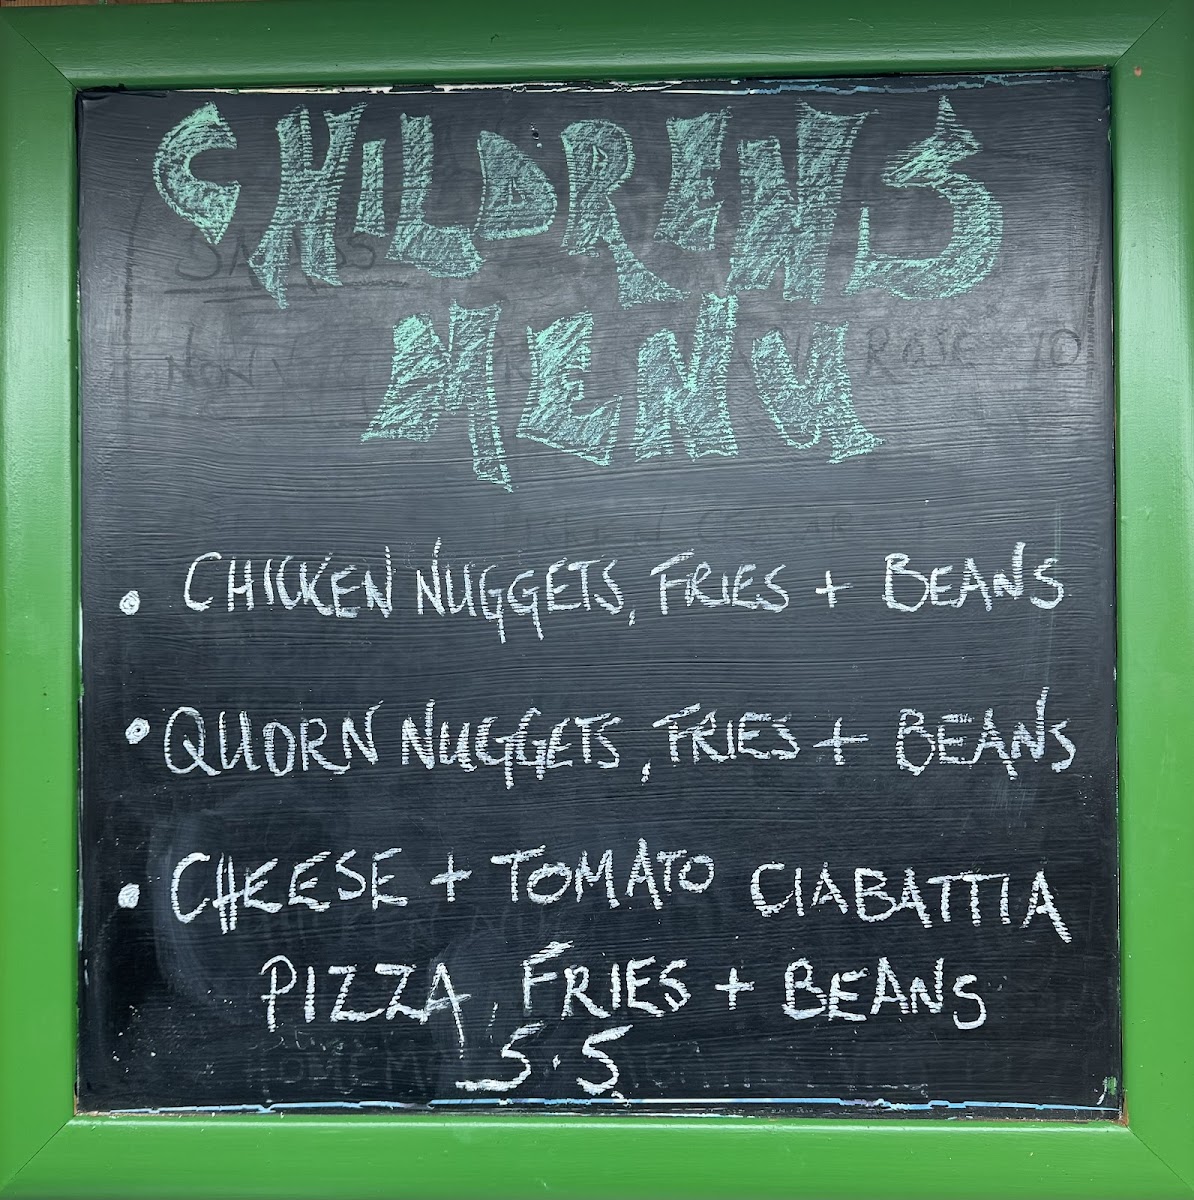 CHILDRENS
MENU
• CHICKEN NUGGETS, FRIES + BEANS
• QUORN NUGGETS, FRIES + BEANS
• CHEESE + TOMATO CIABATTIA
PIZZA, FRIES + BEANS
5.5